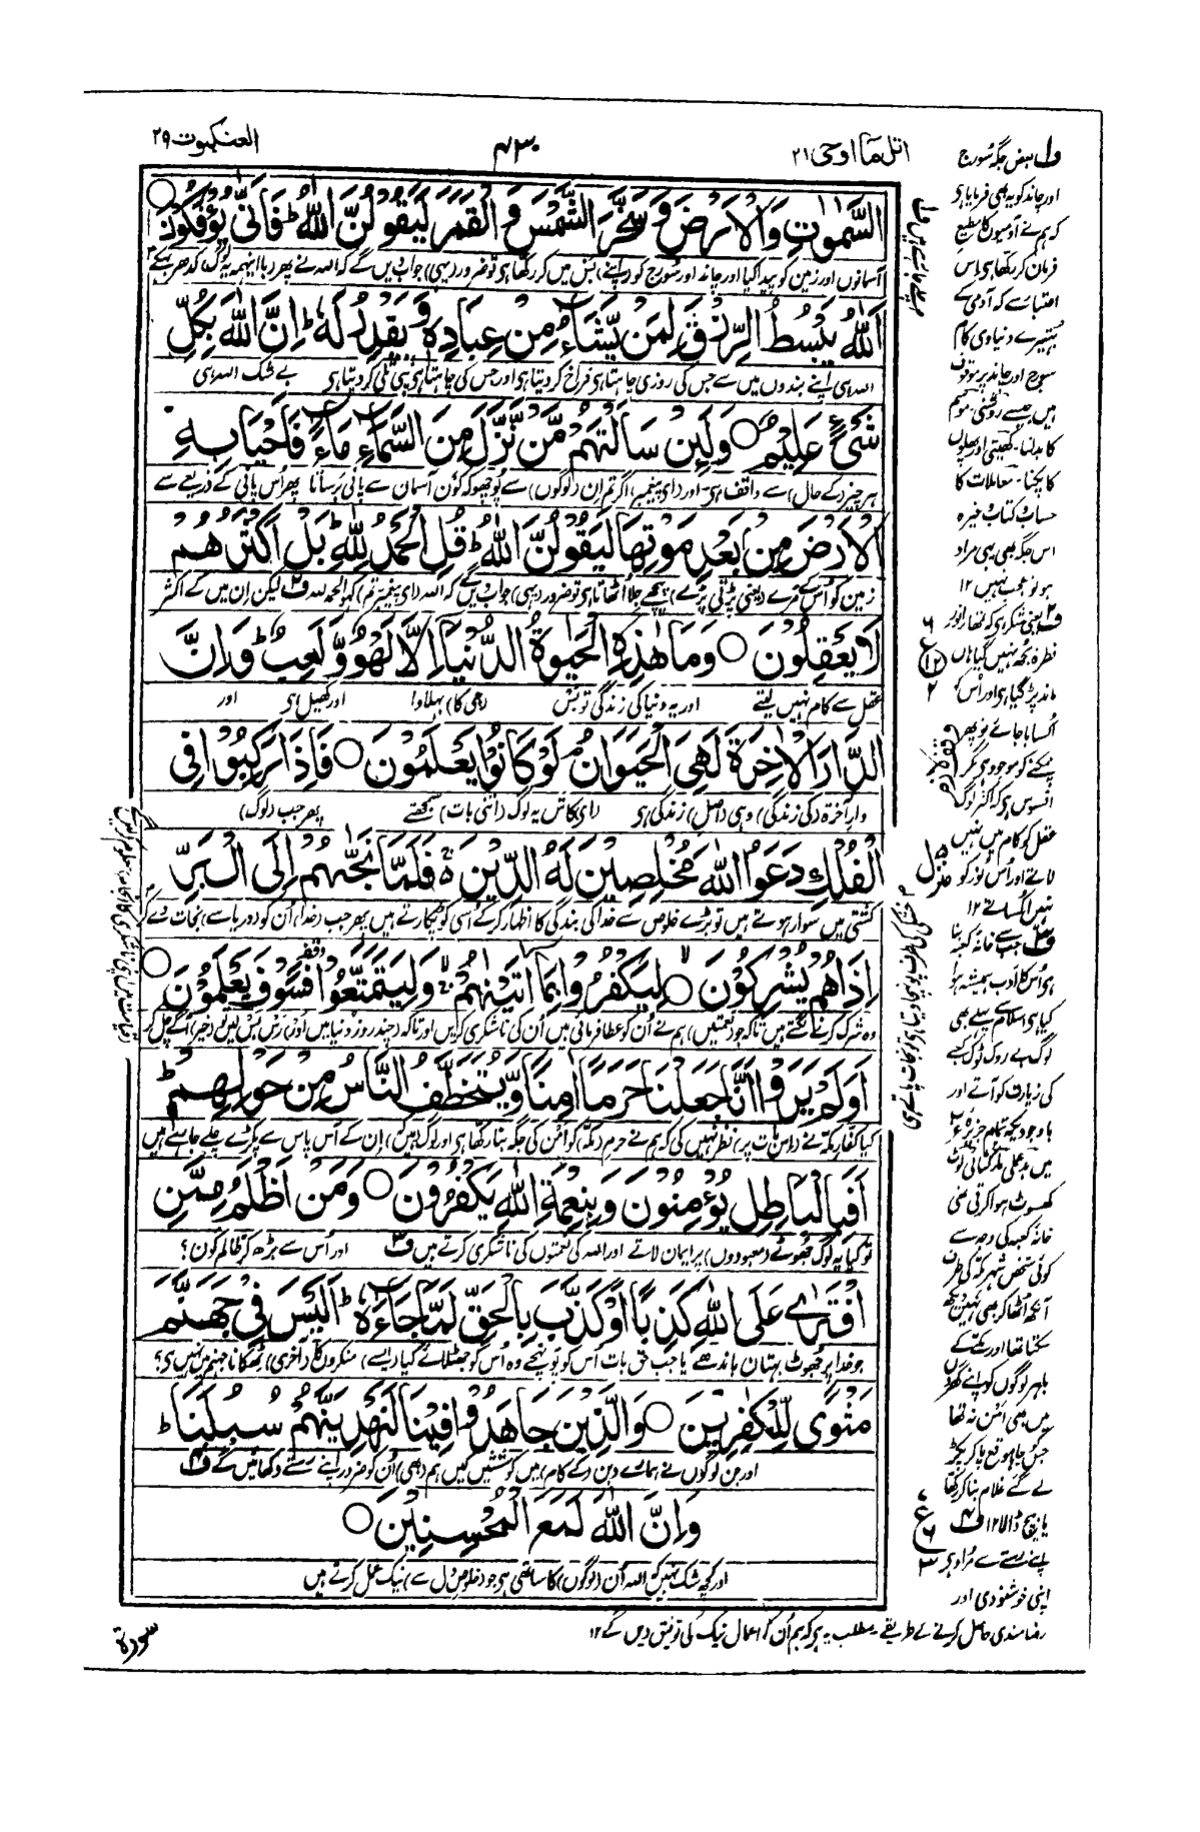 اتل ما اوحی ۲۱
۴۳۰
العنکبوت ۲۹
السَّمٰوٰتِ وَالْاَرْضَ وَسَخَّرَ الشَّمْسَ وَالْقَمَرَ لَیَقُوْلُنَّ اللّٰهُ ۚ فَاَنّٰی یُؤْفَکُوْنَ ○
آسمانوں اور زمین کو پیدا کیا اور چاند اور سورج کو اپنے) بس میں کر رکھا ہی تو ضرور (یہی) جواب دیں گے کہ اللہ نے پھر
اَللّٰهُ یَبْسُطُ الرِّزْقَ لِمَنْ یَّشَآءُ مِنْ عِبَادِهٖ وَیَقْدِرُ لَهٗ ؕ اِنَّ اللّٰهَ بِکُلِّ
اللہ ہی اپنے بندوں میں سے جس کی روزی چاہتا ہی فراخ کر دیتا ہی اور جس کی چاہتا ہی نپی تلی کر دیتا ہی بے شک اللہ ہی
شَیْءٍ عَلِیْمٌ ○ وَلَئِنْ سَاَلْتَهُمْ مَّنْ نَّزَّلَ مِنَ السَّمَآءِ مَآءً فَاَحْیَا بِهِ
ہر چیز (کے حال) سے واقف ہی۔ اور (ای پیغمبر) اگر تم ان (لوگوں) سے پوچھو کہ کون آسمان سے پانی برساتا پھر اُس پانی کے ذریعے سے
الْاَرْضَ مِنْۢ بَعْدِ مَوْتِهَا لَیَقُوْلُنَّ اللّٰهُ ؕ قُلِ الْحَمْدُ لِلّٰهِ ؕ بَلْ اَکْثَرُهُمْ
زمین کو اُس کے مرے (یعنی پڑتی پڑے) پیچھے جلا اُٹھاتا ہی تو ضرور (یہی) جواب دیں گے کہ اللہ (ای پیغمبر تم) کہو الحمد للہ ف۲ لیکن ان میں کے اکثر
لَا یَعْقِلُوْنَ ○ وَمَا هٰذِهِ الْحَیٰوةُ الدُّنْیَاۤ اِلَّا لَهْوٌ وَّلَعِبٌ ؕ وَاِنَّ
عقل سے کام نہیں لیتے اور یہ دنیا کی زندگی تو بس (جی کا) بہلاوا اور کھیل ہی اور
الدَّارَ الْاٰخِرَةَ لَهِیَ الْحَیَوَانُ ۘ لَوْ کَانُوْا یَعْلَمُوْنَ ○ فَاِذَا رَکِبُوْا فِی
دارِ آخرۃ (کی زندگی) وہی (اصل) زندگی ہی (ای) کاش یہ لوگ (اتنی بات) سمجھتے پھر جب (لوگ)
الْفُلْکِ دَعَوُا اللّٰهَ مُخْلِصِیْنَ لَهُ الدِّیْنَ ۚ فَلَمَّا نَجّٰهُمْ اِلَی الْبَرِّ
کشتی میں سوار ہوتے ہیں تو بڑے خلوص سے خدا کی بندگی کا اظہار کر کے اُسی کو پکارتے ہیں پھر جب (خدا) اُن کو (دریا سے) نجات دے کر
اِذَا هُمْ یُشْرِکُوْنَ ○ لِیَکْفُرُوْا بِمَاۤ اٰتَیْنٰهُمْ ۙ وَلِیَتَمَتَّعُوْا فَسَوْفَ یَعْلَمُوْنَ ○
وہ شرک کرنے لگتے ہیں تاکہ جو (نعمتیں) ہم نے اُن کو عطا فرمائی ہیں اُن کی ناشکری کریں اور تاکہ (چند روز دنیا میں اور) رس بس لیں (خیر) آگے چل کر
اَوَلَمْ یَرَوْا اَنَّا جَعَلْنَا حَرَمًا اٰمِنًا وَّیُتَخَطَّفُ النَّاسُ مِنْ حَوْلِهِمْ ؕ
کیا کفارِ مکہ نے (اس بات پر) نظر نہیں کی کہ ہم نے حرم (مکہ) کو امن کی جگہ بنا رکھا ہی اور لوگ (ہیں) ان کے آس پاس سے پکڑے چلے جاتے ہیں
اَفَبِالْبَاطِلِ یُؤْمِنُوْنَ وَبِنِعْمَةِ اللّٰهِ یَکْفُرُوْنَ ○ وَمَنْ اَظْلَمُ مِمَّنِ
تو کیا یہ لوگ جھوٹے (معبودوں) پر ایمان لاتے اور اللہ کی نعمتوں کی ناشکری کرتے ہیں ف۳ اور اُس سے بڑھ کر ظالم کون؟
افْتَرٰی عَلَی اللّٰهِ کَذِبًا اَوْ کَذَّبَ بِالْحَقِّ لَمَّا جَآءَهٗ ؕ اَلَیْسَ فِیْ جَهَنَّمَ
جو خدا پر جھوٹ بہتان باندھے یا جب حق بات اُس کو پہنچے وہ اُس کو جھٹلائے کیا (ایسے) منکروں کا (آخری) ٹھکانا جہنم میں نہیں ہی؟
مَثْوًی لِّلْکٰفِرِیْنَ ○ وَالَّذِیْنَ جَاهَدُوْا فِیْنَا لَنَهْدِیَنَّهُمْ سُبُلَنَا ؕ
اور جن لوگوں نے ہمارے دین (کے کام) میں کوششیں کیں ہم (بھی) اُن کو ضرور اپنے رستے دکھائیں گے ف۴
وَاِنَّ اللّٰهَ لَمَعَ الْمُحْسِنِیْنَ ○
اور کچھ شک نہیں کہ اللہ اُن (لوگوں) کا ساتھی ہی جو (خلوصِ دل سے) نیک عمل کرتے ہیں
ف۱ بعض جگہ سورج
اور چاند کو یہ بھی فرمایا ہی
کہ ہم نے آدمیوں کا مطیع
فرمان کر رکھا ہی اس
اعتبار سے کہ آدمی کے
بہتیرے دنیاوی کام
سورج اور چاند پر موقوف
ہیں جیسے روشنی موسم
کا بدلنا۔ کھیتی اور پھلوں
کا پکنا۔ معاملات کا
حساب کتاب وغیرہ
اس جگہ بھی یہی مراد
ہو تو عجب نہیں ۱۲
ف۲ یعنی شکر ہی کہ تمھارا نور
فطرۃ بجھ نہیں گیا ہاں
ماند پڑ گیا ہی اور اُس کو
اُکسایا جائے تو پھر
چمکنے کو موجود ہی مگر
افسوس ہی کہ اکثر لوگ
عقل کو کام میں نہیں
لاتے اور اُس نور کو
نہیں اُکساتے ۱۲
ف۳ جب سے خانہ کعبہ بنا
ہی اُس کا ادب ہمیشہ ہوا
کیا ہی اسلام سے پہلے بھی
لوگ بے روک ٹوک کعبے
کی زیارت کو آتے اور
باوجودیکہ تمام جزیرۂ عرب
میں بدعملی مار کٹائی لوٹ
کھسوٹ ہوا کرتی تھی
خانہ کعبہ کی وجہ سے
کوئی شخص شہر مکہ کی طرف
آنکھ اُٹھا کر بھی نہیں دیکھ
سکتا تھا اور مکے کے
باہر لوگوں کو اپنے گھروں
میں بھی امن نہ تھا
جس کا جہاں موقع پایا پکڑ
لے گئے غلام بنا کر رکھا
یا بیچ ڈالا ۱۲ ف۴
اپنے رستے سے مراد ہی
اپنی خوشنودی اور
رضامندی حاصل کرنے کے طریقے۔ مطلب یہ ہی کہ ہم اُن کو اعمال نیک کی توفیق دیں گے ۱۲
سورۃ